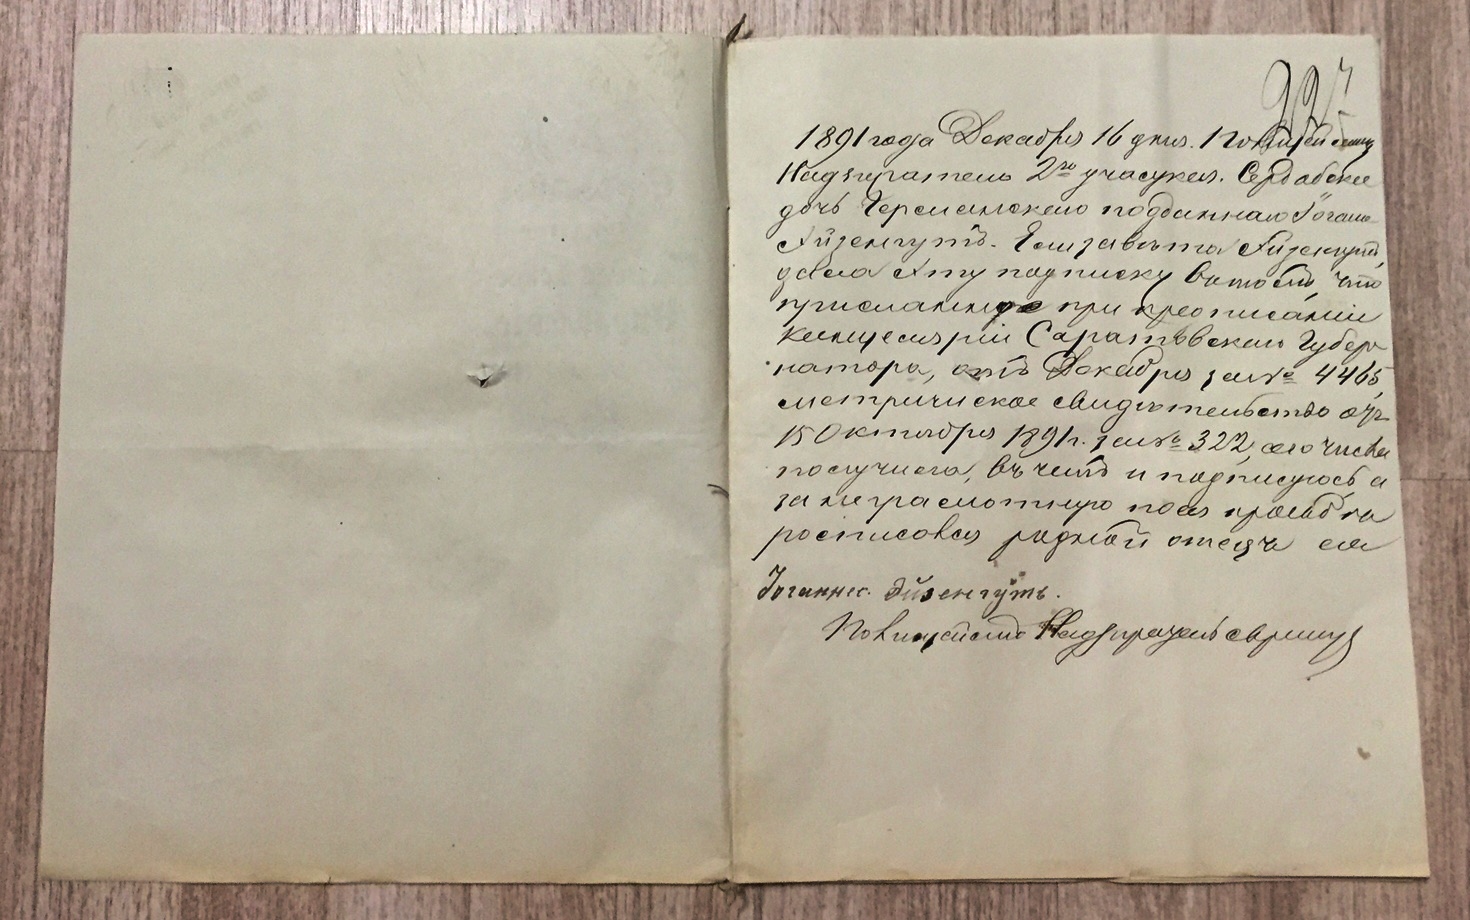 227
1891 года Декабря 16 дня. Полицейский
Надзиратель 2го участка. Сердобска
дочь Германскаго подданнаго Іоганн
Айзенгутъ. Елизавета Айзенгутъ,
дала эту подписку въ томъ, что
присланное при предписаніи
канцеляріи Саратовскаго Губер
натора, отъ Декабря за № 4465
метрическое свидѣтельство отъ
15 Октября 1891 г. за № 322, его числа
получила, въ чемъ и подписуюсь а
за неграмотную по ея просьбѣ
росписовся родной отецъ ея
Іоганнес. Эйзенгутъ.
Полицейскій Надзиратель